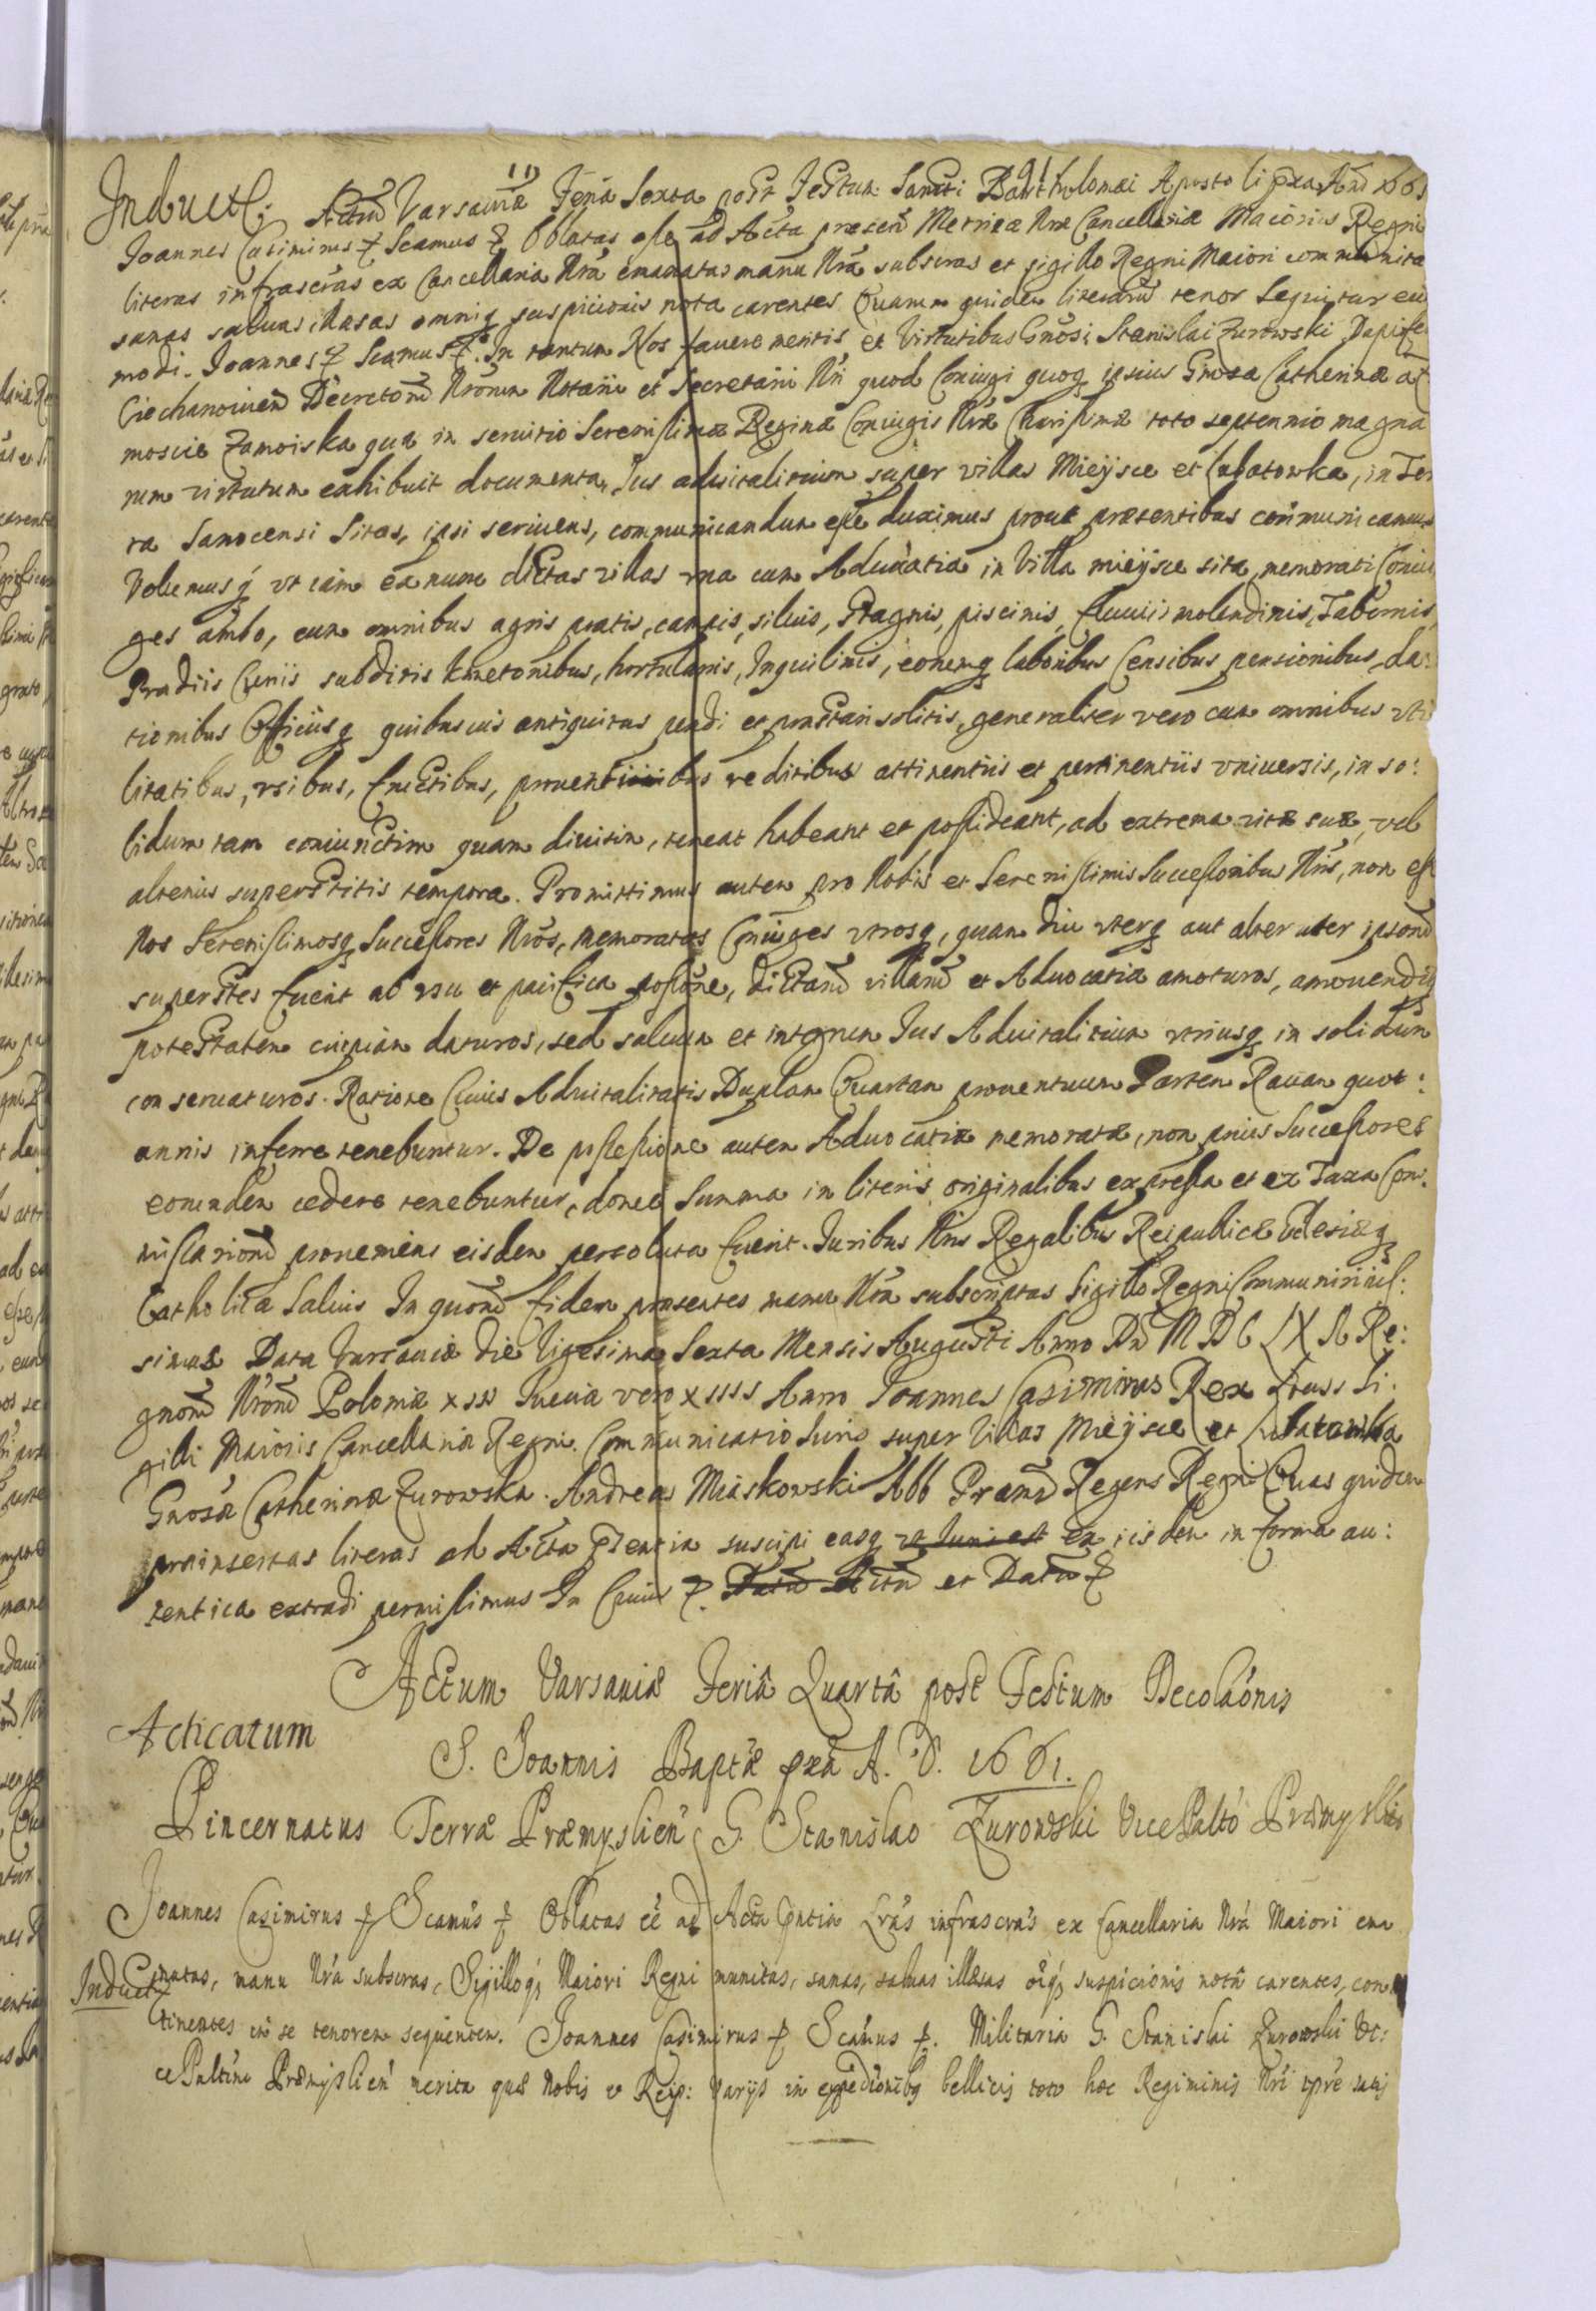 Induct: Actũ Varsaviæ Feria Sexta post Festum Sancti Bartholomæi Apostoli pxa Ano 1661
Joannes Casimirus & Scamus & Oblatas esse ad Acta præsen Metricæ Nræ Cancellariæ Maioris Regni
literas infrascras ex Cancellaria Nrã emanatas manu Nrã subscras et sigillo Regni Maiori communita
sanas saluas illasas omniq suspicionis nota carentes Quarum quidem literarũ tenor sequitur eiu
modi. Joannes & Scamus &. In tantum Nos fauere meritis et Virtutibus Gnõsi Stanislai Zurowski Dapife
Ciechanouien Decretorũ Nrorum Notarii et Secretarii Nri quod Coniugi quoq ipsius Gnosa Catherinæ a
moscie Zamoiska quæ in seruitio Serenissimæ Reginæ Coniugis Nræ Charissimæ toto septennio magna
rum virtutum exhibuit documenta, Jus aduitalitium super villas Mieÿsce et Lubatowka, in Ter
ra Sanocensi Sitas, ipsi seruiens, communicandum esse duximus prout præsentibus communicamus
Volumusq́ vt iam ex nunc dictas villas vna cum Aduocatia in Villa mieÿsce sita, memorati Coniu
ges ambo, cum omnibus agris pratis, campis, siluis, Stagnis, piscinis, fluuiis molendinis, Tabernis,
Prædiis Curiis subditis kmetonibus, hortulanis, Inquilinis, eorumq laboribus Censibus pensionibus, da:
tionibus Officiisq quibusuis antiquitus pendi et præstari solitis, generaliter vero cum omnibus vti
litatibus, vsibus, fructibus, prouentibus reditibus attinentiis et pertinentiis vniuersis, in so:
lidum tam coniunctim quam diuisim, teneant habeant et possideant, ad extrema vitæ suæ, vel
alterius superstitis tempora. Promittimus autem pro Nobis et Serenissimis Successoribus Nris, non esse
Nos Serenissimosq Successores Nros, memoratos Coniuges vtrosq, quam diu vterq aut alteruter ipsorũ
superstes fuerit ab vsu et pacifica possone, dictarũ villarũ et Aduocatiæ amoturos, amouendiq
potestatem cuipiam daturos, sed saluum et integrum Jus Aduitalitium vtriusq in solidum
conseruaturos. Ratione Cuius Aduitalitatis Duplam Quartam prouentuum Partem Rauam quot:
annis inferre tenebuntur. De possessione autem Aduocatiæ memoratæ, non prius Successores
eorundem cedere tenebuntur, donec Summa in literis originalibus expressa et ex Taxa Com:
missariorũ proueniens eisdem persoluta fuerit. Juribus Nris Regalibus Reipublicæ Eclesiæq
Catholicæ Saluis In quorũ fidem præsentes manu Nrã subscriptas Sigillo Regni Communiri ius:
simus Data Varsauiæ Die Vigesima Sexta Mensis Augusti Anno Dñi MDCLXI Re:
gnorũ Nrorũ Poloniæ XIII Sueciæ vero XIIII Anno Joannes Casimirus Rex Locus Si:
gilli Maioris Cancellariæ Regni. Communicatio Juris super Villas Mieÿsce et Lubatowka
Gnosæ Catherinæ Zurowska. Andreas Miaskowski Abb Præmẽ Regens Regni Quas quidem
præinsertas literas ad Acta Psentia suscipi easq vt Juris est ex iisdem in forma au:
tentica extradi permisimus In Cuius &. Datũ Actũ et Datũ &
Actum Varsauiæ Feriâ Quartâ post Festum Decolaõnis
Acticatum
S. Joannis Baptæ pxâ A. D. 1661.
Pincernatus Terræ Præmyslien G. Stanislao Zurowski Vice Paltõ Præmyslien
Joannes Casimirus & Scamus & Oblatas eẽ ad Acta Pntia Lras infrascras ex Cancellaria Nrá Maiori ema
Induct natas, manu Nrá subscras, Sigilloq́ Maiori Regni munitas, sanas, saluas illæsas oĩq́ suspicionis notâ carentes, con
tinentes in se tenorem sequentem. Joannes Casimirus & Scamus &. Militaria G. Stanislai Zurowski Vi:
ce Paltini Præmyslien merita quæ Nobis et Reip: varijs in expeditionibq bellicis toto hoc Regiminis Nri tpre suis